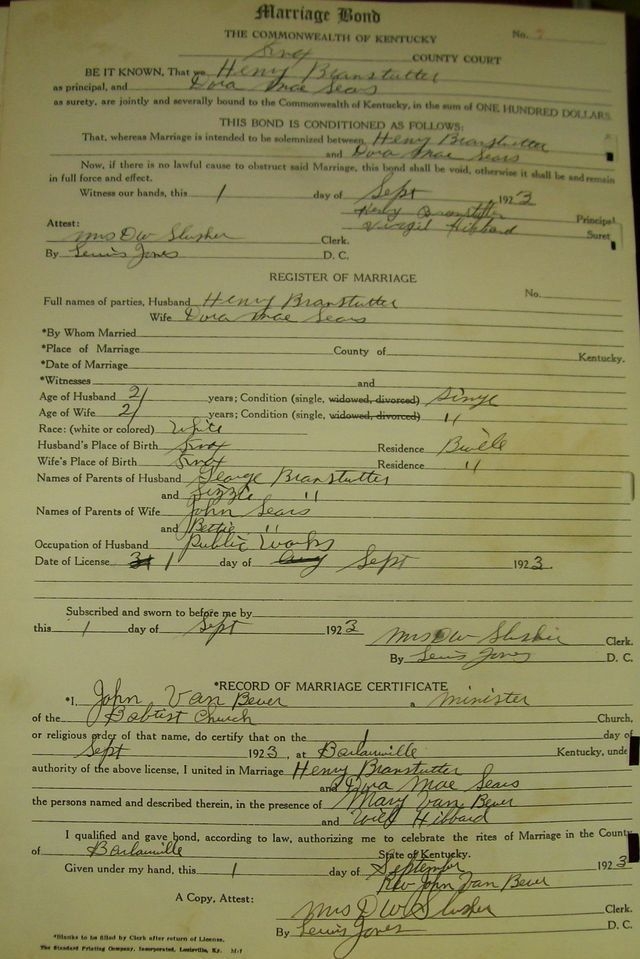 Marriage Bond
THE COMMONWEALTH OF KENTUCKY No.
Knox COUNTY COURT
BE IT KNOWN, That we Henry Branstutter
as principal, and Dora Mae Sears
as surety, are jointly and severally bound to the Commonwealth of Kentucky, in the sum of ONE HUNDRED DOLLARS
THIS BOND IS CONDITIONED AS FOLLOWS:
That, whereas Marriage is intended to be solemnized between Henry Branstutter
and Dora Mae Sears
Now, if there is no lawful cause to obstruct said Marriage, this bond shall be void, otherwise it shall be and remain
in full force and effect.
Witness our hands, this 1 day of Sept 1923
Henry Branstutter Principal
Virgil Hibbard Suret
Attest:
Mrs DW Slusher Clerk.
By Lewis Jones D. C.
REGISTER OF MARRIAGE
Full names of parties, Husband Henry Branstutter No.
Wife Dora Mae Sears
*By Whom Married
*Place of Marriage County of Kentucky.
*Date of Marriage
*Witnesses and
Age of Husband 21 years; Condition (single, widowed, divorced) Single
Age of Wife 21 years; Condition (single, widowed, divorced) "
Race: (white or colored) White
Husband's Place of Birth Knox Residence Bville
Wife's Place of Birth Knox Residence "
Names of Parents of Husband George Branstutter
and Lizzie "
Names of Parents of Wife John Sears
and Bettie "
Occupation of Husband Public Works
Date of License 31 1 day of Aug Sept 1923.
Subscribed and sworn to before me by
this 1 day of Sept 1923 Mrs DW Slusher Clerk.
By Lewis Jones D. C.
*RECORD OF MARRIAGE CERTIFICATE
*I, John Van Bever a minister
of the Babtist Church Church,
or religious order of that name, do certify that on the 1 day of
Sept 1923, at Barbourville Kentucky, unde
authority of the above license, I united in Marriage Henry Branstutter
and Dora Mae Sears
the persons named and described therein, in the presence of Mary Van Bever
and Will Hibbard
I qualified and gave bond, according to law, authorizing me to celebrate the rites of Marriage in the County
of Barbourville State of Kentucky.
Given under my hand, this 1 day of September 1923
Rev John Van Bever
A Copy, Attest:
Mrs DW Slusher Clerk.
By Lewis Jones D. C.
*Blanks to be filled by Clerk after return of License.
The Standard Printing Company, Incorporated, Louisville, Ky.